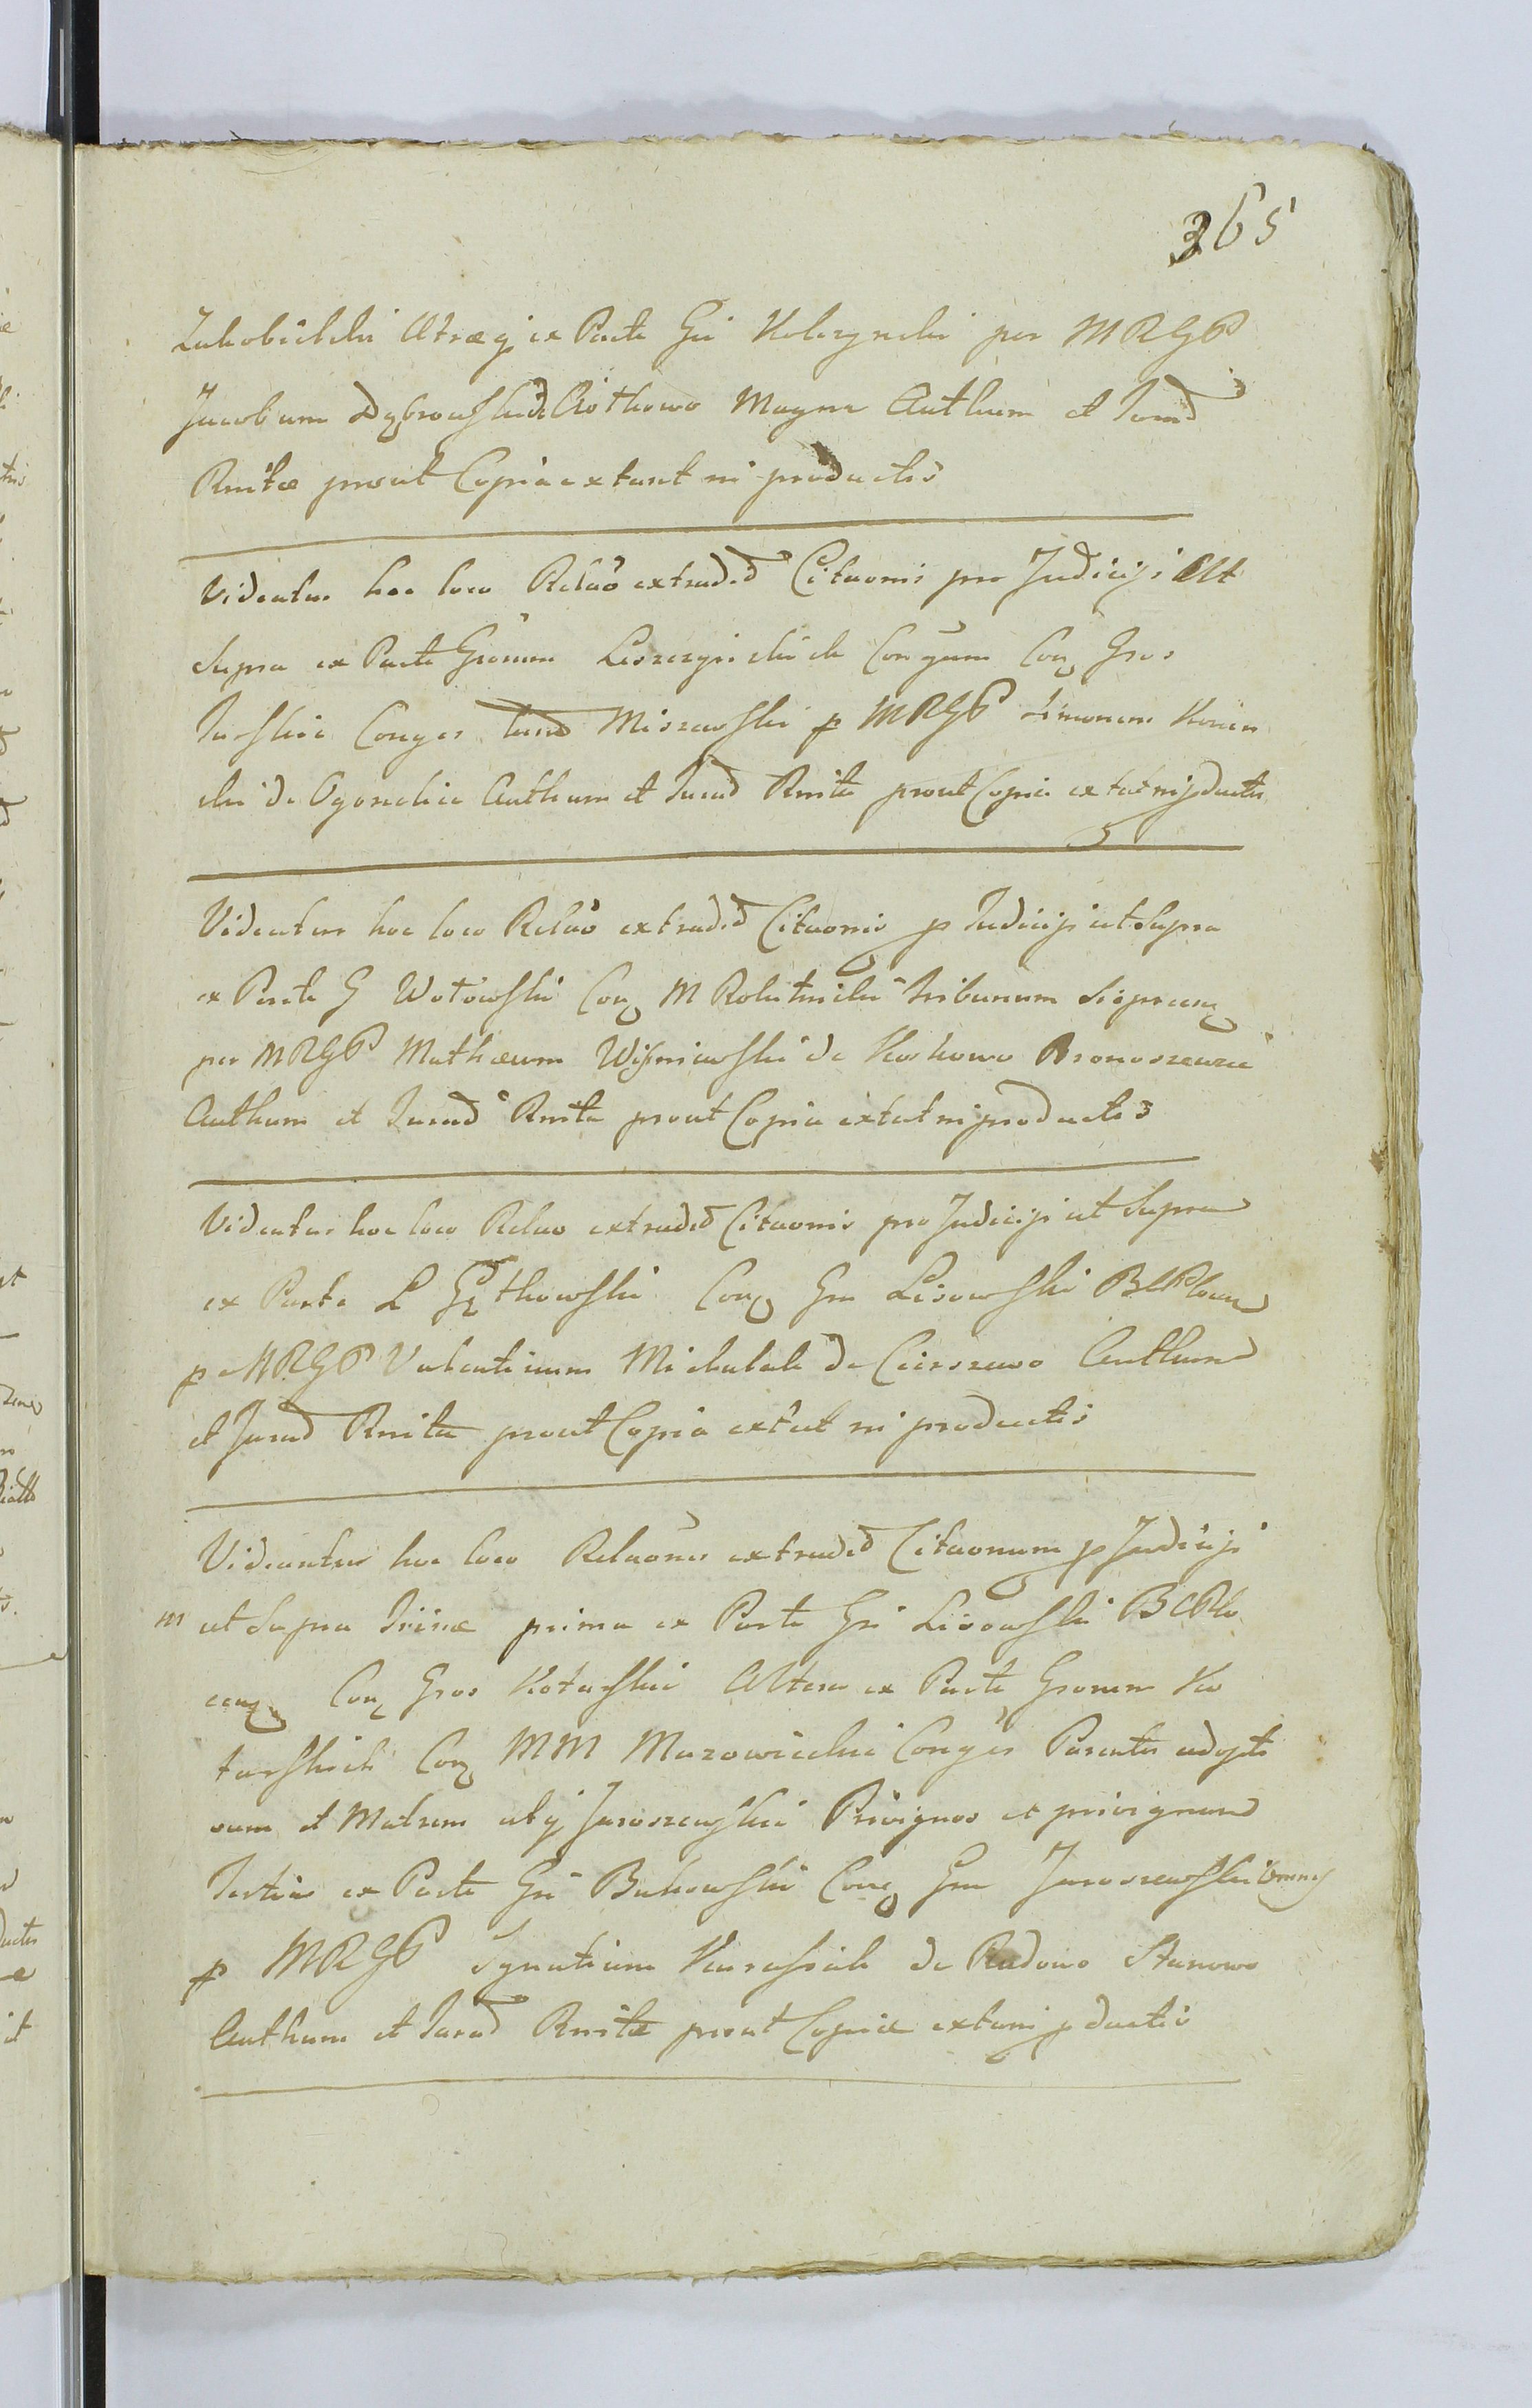 365
Zakobielski Utraq ex Parte Gni Kolczynski per MRGP
Jacobum Dąbrowski de Ciothowo Mayne Authum et Jurad
Rnitæ prout Copiæ extant ni productis
Videatur hoc loco Relaõ extradđ Citaonis pro Judicijs Ut
Supra ex Parte Gnorum Leszczynskich Conjgum Con Gnos
Conges Miszewski p MRGP Simonem
ski de Ogonekice Authum et Jurad Rnita prout Copia extat ni pductis
Videatur hoc loco Relaõ extradđ Citaonis p Judicijs ut Supra
ex Parte G Wotowski Con M Rokitnicki Tribunum Sierpcens
per MRGP Mathæum Wiśniewski de Kockowo Bronoszewice
Authum et Jurad Rnita prout Copia extat ni productis
Videatur hoc loco Relao extradđ Citaonis pro Judicijs ut Supra
ex Parte L Gętkowski Con Gnu Lisowski BCPlocen
p MRGP Valentinum Michalak de Cieszewo Authum
et Jurad Rnita prout Copia extat ni productis
Videantur hoc loco Relaones extradđ Citaonum p Judicijs
m ut Supra Trinæ prima ex Parte Gni Lisowski BCPlo
cen Con Gnos Kotarskie Altera ex Parte Gnorum Ko
tarskich Con MM Mazowieckie Conges Parentes
et Matrem atq Jaroszewskie Privignos et privignam
Tertia ex Parte Gni Bukowski Con Gnu Jaroszewski omnes
p MRGP Ignatium de Radowo Stanowo
Authum et Jurad Rnitæ prout Copiæ extant ni pductis